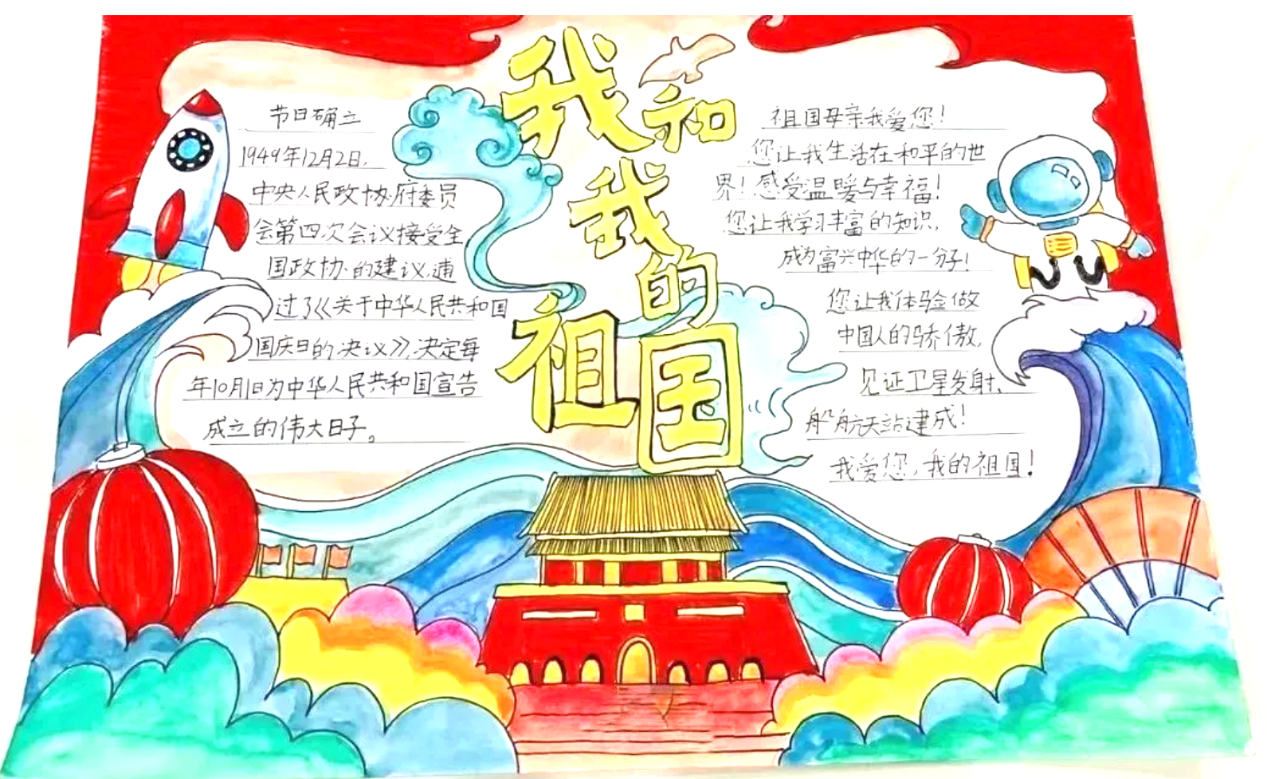 我和
我的
祖国
节日确立
1949年12月2日,
中央人民政协府委员
会第四次会议接受全
国政协的建议,通
过了《关于中华人民共和国
国庆日的决议》,决定每
年10月1日为中华人民共和国宣告
成立的伟大日子。
祖国母亲我爱您!
您让我生活在和平的世
界!感受温暖与幸福!
您让我学习丰富的知识,
成为富兴中华的一分子!
您让我体验做
中国人的骄傲,
见证卫星发射,
船航天站建成!
我爱您,我的祖国!